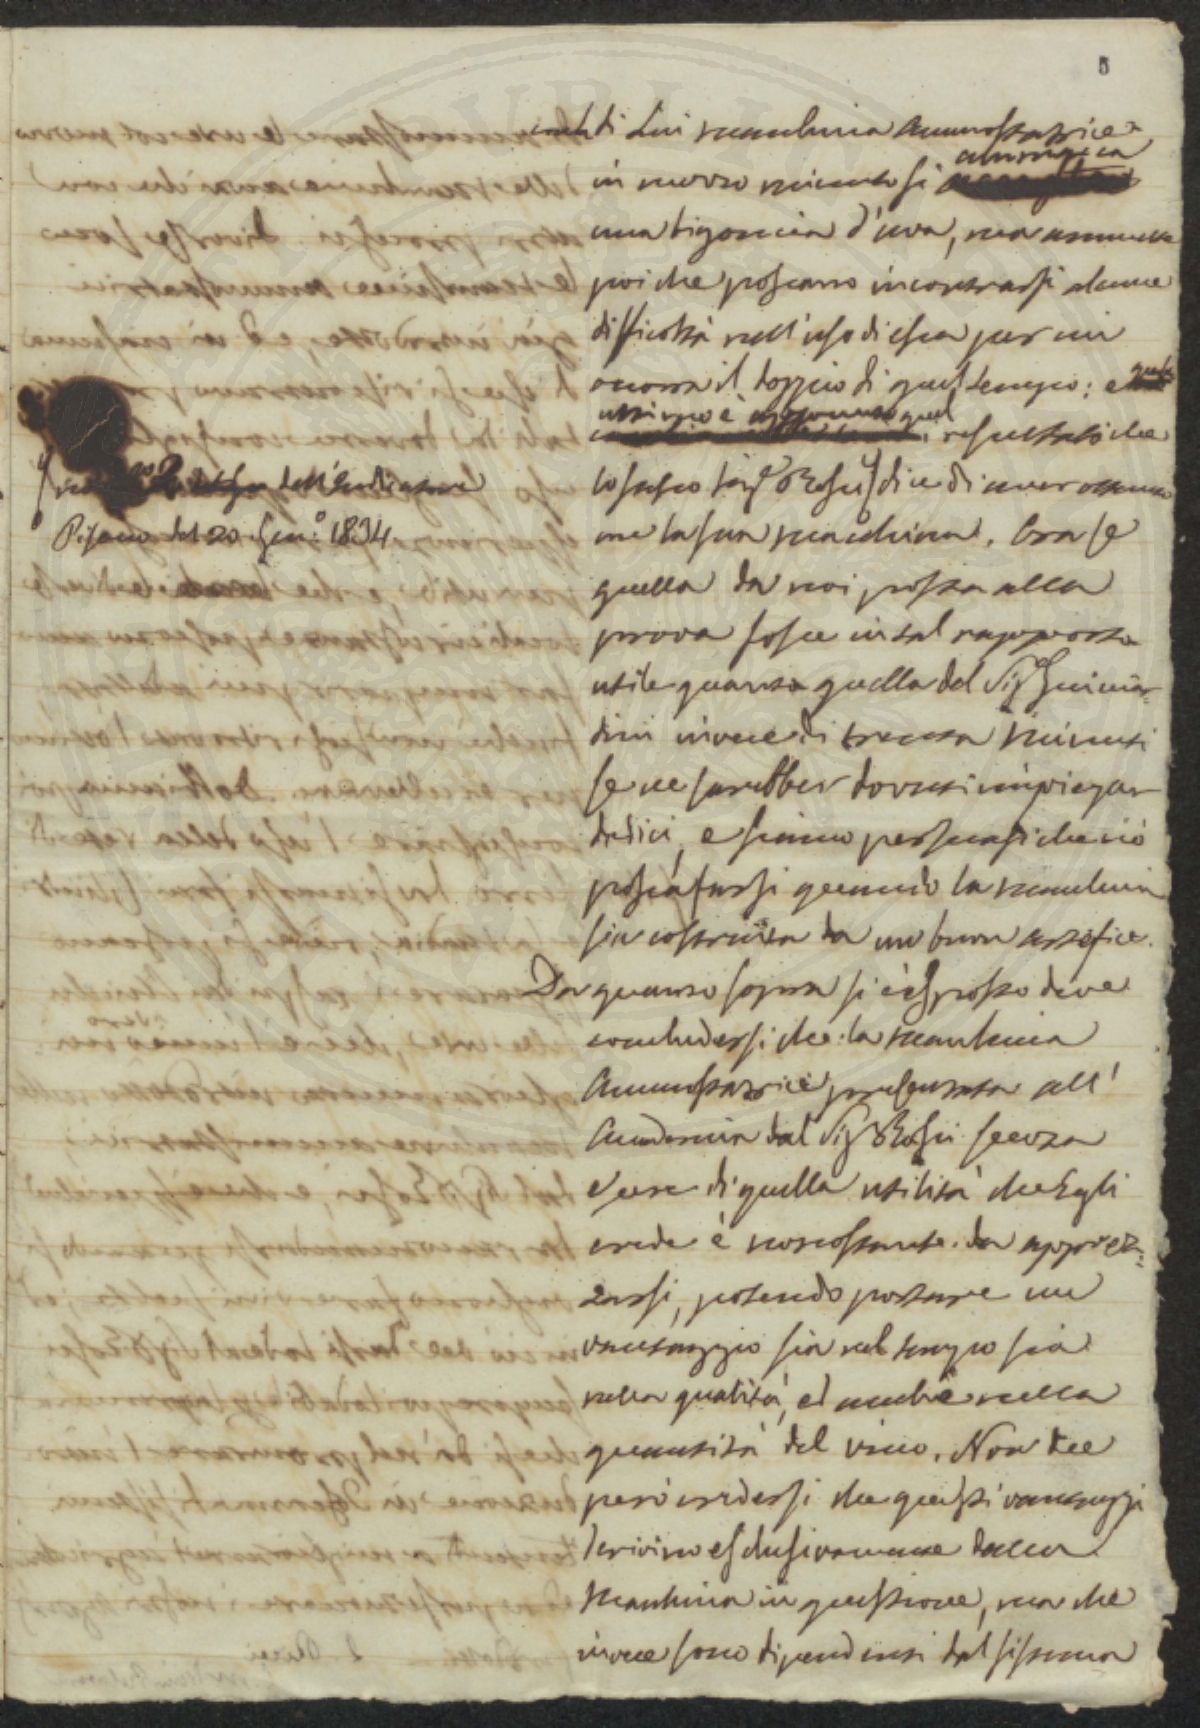 5
di Lui macchina Ammostatrice
in mezzo minuto si ammosta
una bigoncia d'uva, ma ammette
poi che possano incontrarsi alcune
difficoltà nell'uso di essa per cui
occorra il doppio di quel tempo: e questo
ultimo è appunto quel resultato che
lo stesso Sig.r Rossi dice di aver ottenuto
con la sua macchina. Ora se
quella da noi posta alla
prova fosse in tal rapporto
utile quanto quella del Sig.r Guicciar-
dini invece di trenta minuti
se ne sarebber dovuti impiegar
dodici, e siamo persuasi che ciò
possa farsi quando la macchina
sia costruita da un buon artefice.
Da quanto sopra si è esposto deve
concludersi che: la macchina
Ammostatrice presentata all'
Accademia dal Sig.r Rossi senza
essere di quella utilità che Egli
crede è nonostante da apprez-
zarsi, potendo portare un
vantaggio sia nel tempo sia
nella qualità, ed anche nella
quantità del vino. Non dee
però credersi che questi vantaggi
derivino esclusivamente dalla
macchina in questione, ma che
invece sono dipendenti dal sistema
dell'Indicatore
Pisano del 20 Gen.o 1834